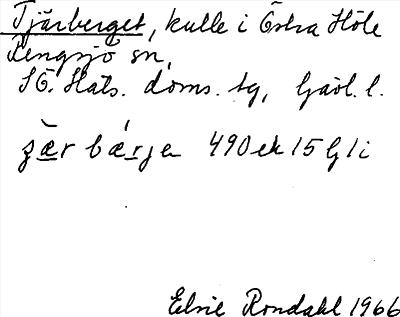 Tjärberget, kulle i Östra Höle
Rengsjö sn,
SÖ. Häls. doms. tg, Gävl. l.
ʒ̀ær bǽrjen 490 ek 15 G 1 i
Elsie Rondahl 1966